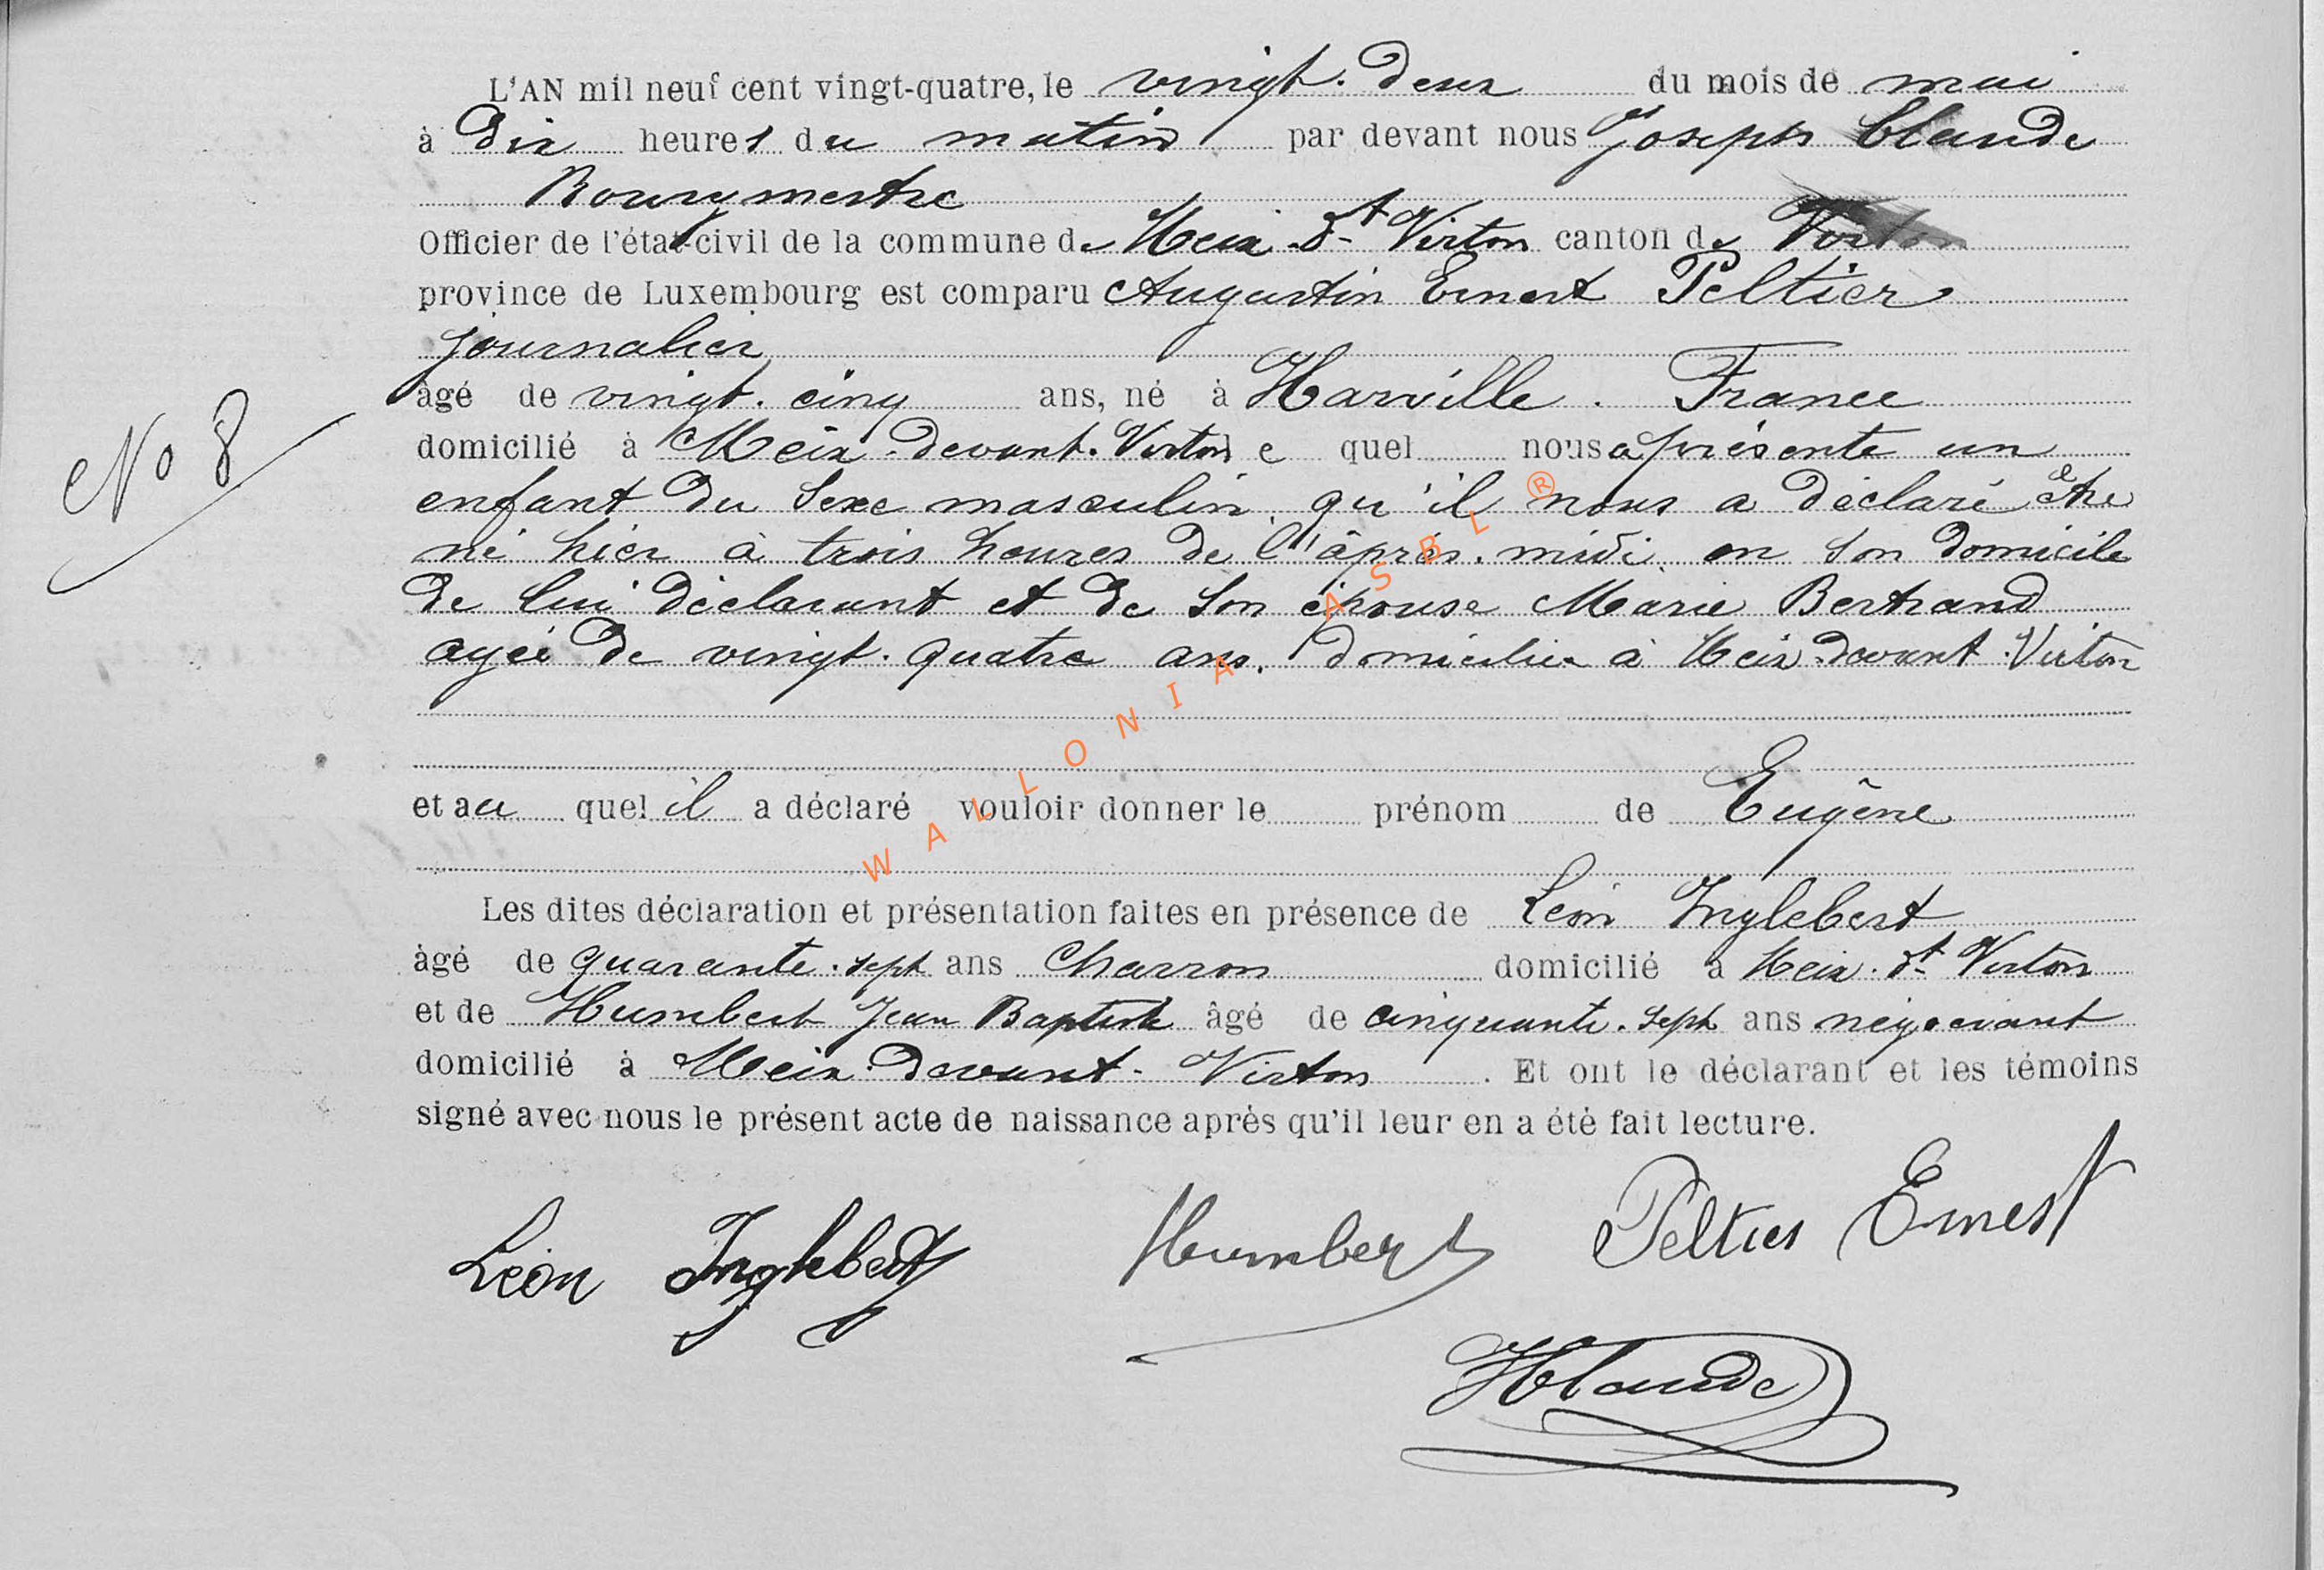 L'AN mil neuf cent vingt-quatre, le vingt-deux du mois de mai
à dix heures du matin par devant nous Joseph Claude
Bourgmestre
Officier de l'état-civil de la commune de Meix-dt-Virton canton de Virton
province de Luxembourg est comparu Augustin Ernest Peltier
journalier
âgé de vingt-cinq ans, né à Harville. France
domicilié à Meix-devant-Virton le quel nous a présenté un
No 8
enfant du sexe masculin qu'il nous a déclaré être
né hier à trois heures de l'après-midi, en son domicile
de lui déclarant et de son épouse Marie Bertrand
agée de vingt-quatre ans, domiciliée à Meix-devant-Virton
et au quel il a déclaré vouloir donner le prénom de Eugêne
Les dites déclaration et présentation faites en présence de Léon Inglebert
âgé de quarante-sept ans Charron domicilié à Meix-dt-Virton
et de Humbert Jean Baptiste âgé de cinquante-sept ans négociant
domicilié à Meix-devant-Virton. Et ont le déclarant et les témoins
signé avec nous le présent acte de naissance après qu'il leur en a été fait lecture.
Léon Inglebert Humbert Peltier Ernest
JClaude
WALLONIA ASBL ®